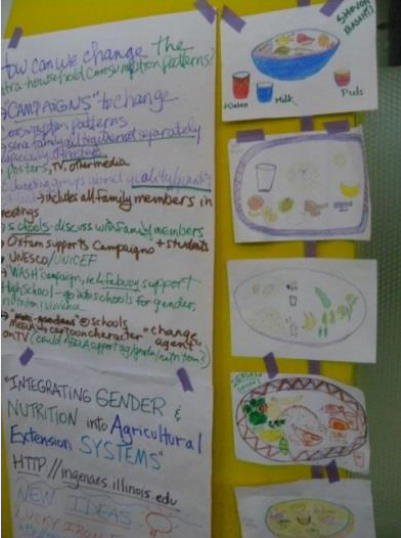 How can we change the
intra-household consumption patterns?
"CAMPAIGNS" to change
consumption patterns
family not separately
posters, TV, other media
groups quality/quantity
→ includes all family members in
meetings
schools - discuss with family members
Oxfam supports Campaigns + students
UNESCO/UNICEF
"WASH" campaign, lifebuoy support
High school - go into schools for gender,
nutrition
@ schools "change
cartoon character agent"
on TV (could support ag/gender/nutrition?)
"INTEGRATING GENDER &
NUTRITION into Agricultural
Extension SYSTEMS"
HTTP://ingenaes.illinois.edu
NEW IDEAS
LUCKY IRON
SHAVON
BASANTI
Water
Milk
Puls